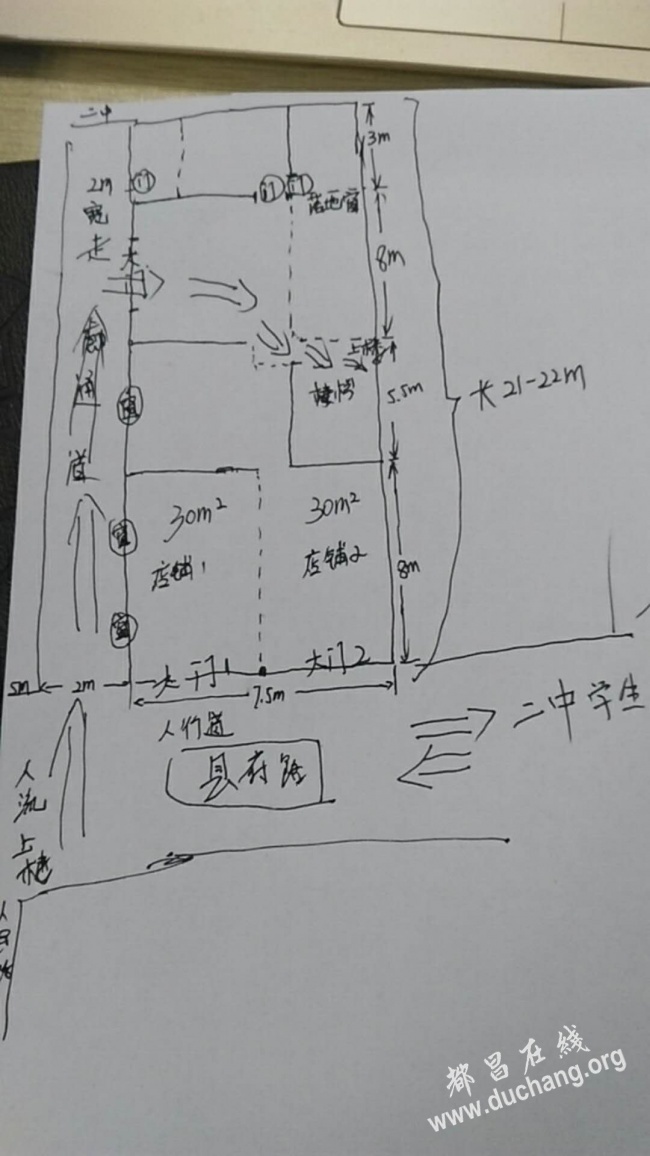 二中
3m
2m
宽
走
廊
通
道
门
门
门
落地窗
大
门
8m
上楼
楼梯
5.5m
长21-22m
窗
窗
窗
30m²
店铺1
30m²
店铺2
8m
5m
2m
大门1
大门2
7.5m
人行道
县府路
二中学生
人
流
上
楼
都昌在线
www.duchang.org